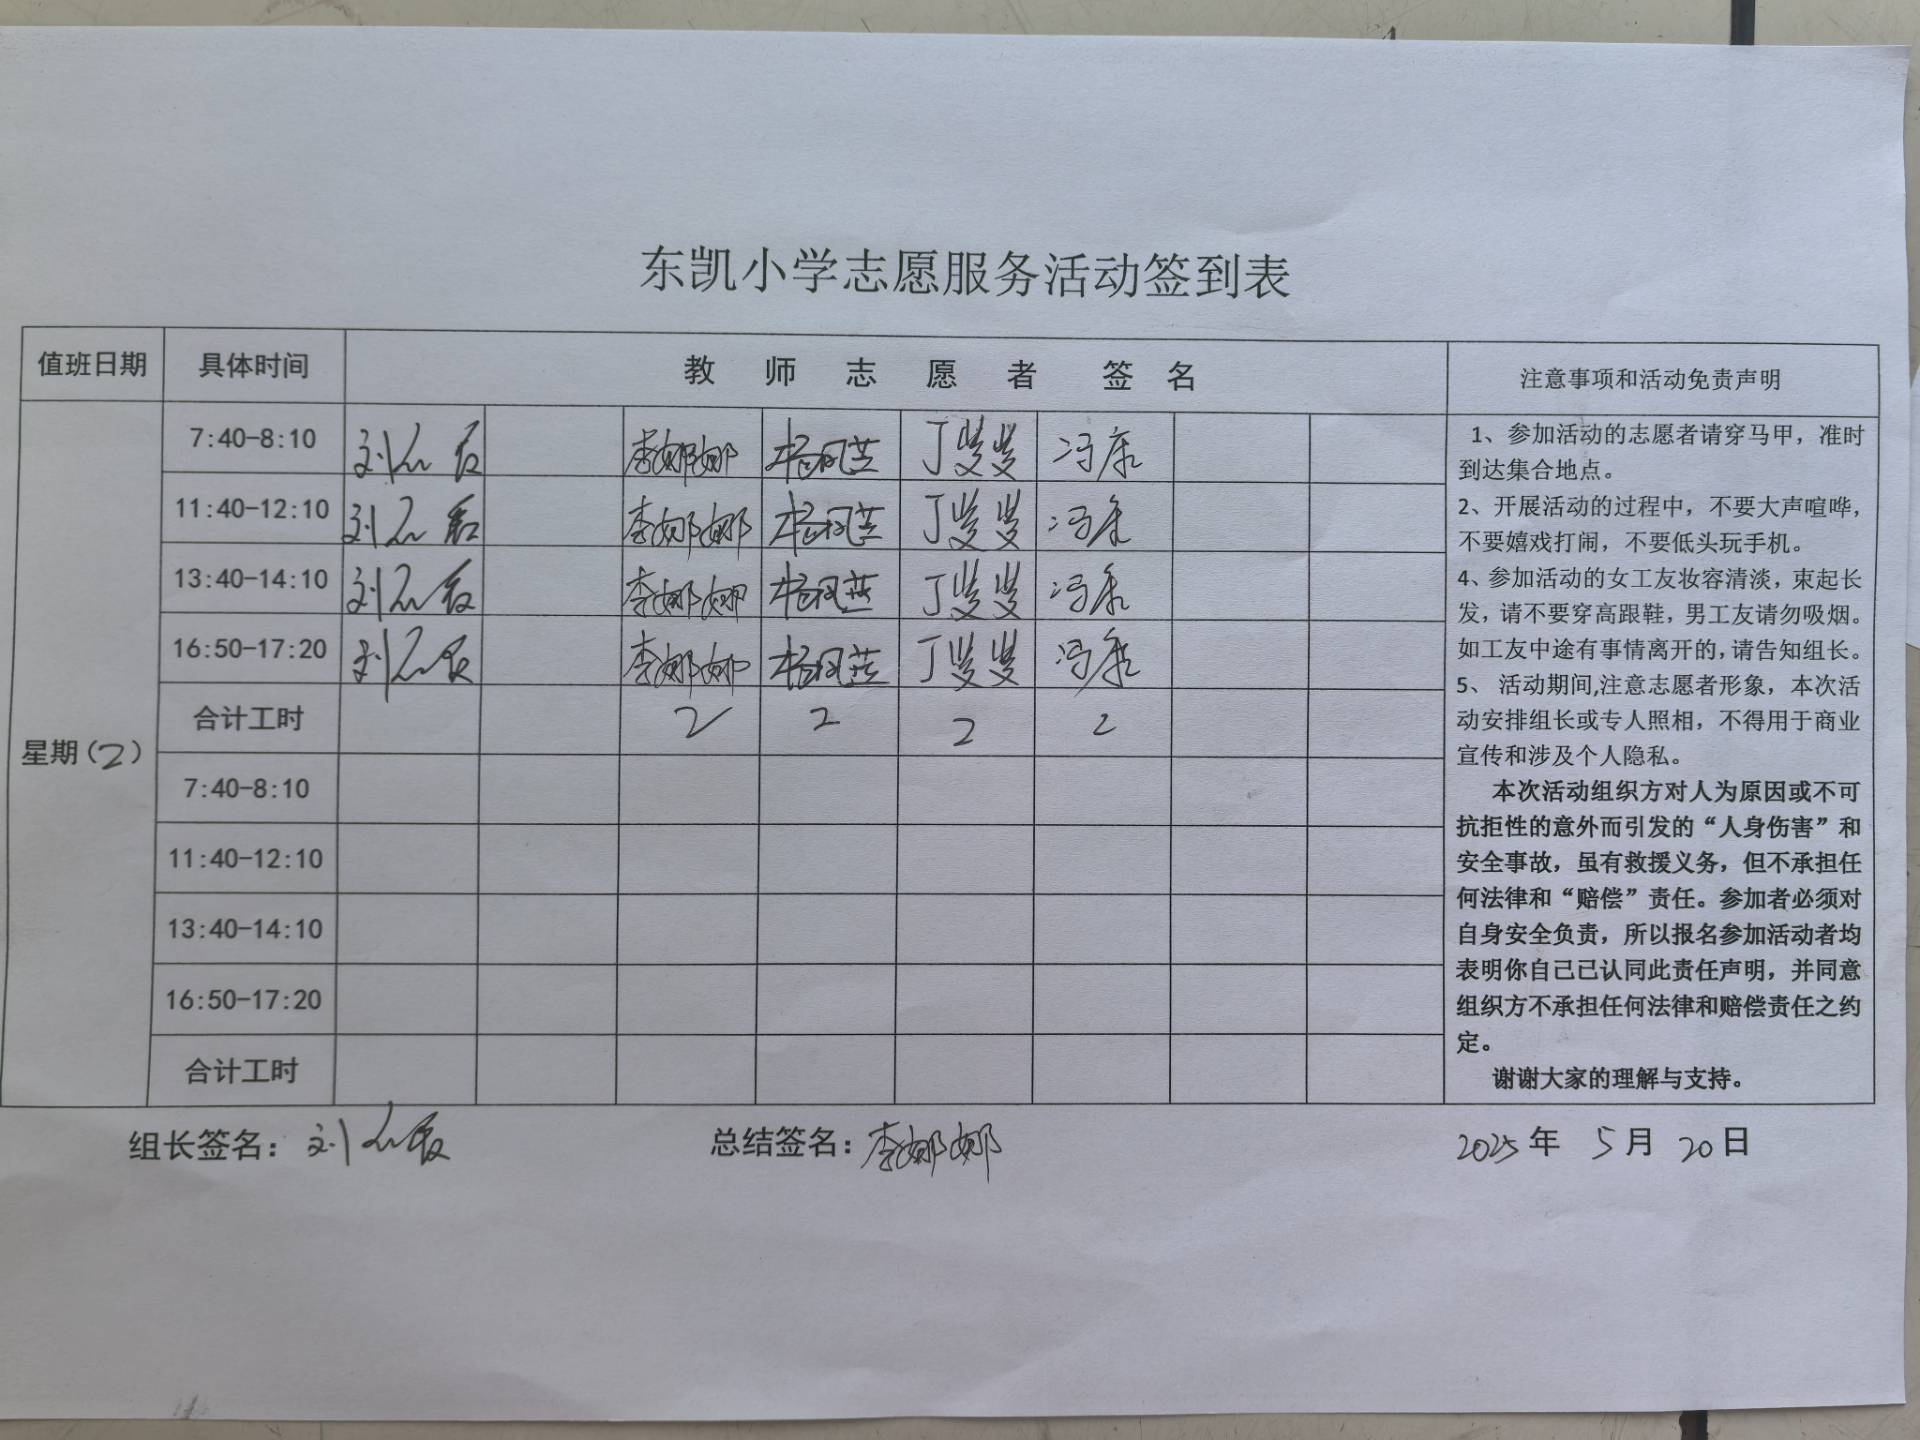 东凯小学志愿服务活动签到表
值班日期 具体时间 教师志愿者签名 注意事项和活动免责声明
7:40-8:10 刘 李娜娜 杨 丁斐斐 冯康
11:40-12:10 刘 李娜娜 杨 丁斐斐 冯康
13:40-14:10 刘 李娜娜 杨 丁斐斐 冯康
16:50-17:20 刘 李娜娜 杨 丁斐斐 冯康
合计工时 2 2 2 2
星期(2)
7:40-8:10
11:40-12:10
13:40-14:10
16:50-17:20
合计工时
1、参加活动的志愿者请穿马甲，准时
到达集合地点。
2、开展活动的过程中，不要大声喧哗，
不要嬉戏打闹，不要低头玩手机。
4、参加活动的女工友妆容清淡，束起长
发，请不要穿高跟鞋，男工友请勿吸烟。
如工友中途有事情离开的,请告知组长。
5、 活动期间,注意志愿者形象，本次活
动安排组长或专人照相，不得用于商业
宣传和涉及个人隐私。
本次活动组织方对人为原因或不可
抗拒性的意外而引发的“人身伤害”和
安全事故，虽有救援义务，但不承担任
何法律和“赔偿”责任。参加者必须对
自身安全负责，所以报名参加活动者均
表明你自己已认同此责任声明，并同意
组织方不承担任何法律和赔偿责任之约
定。
谢谢大家的理解与支持。
组长签名：刘 总结签名：李娜娜 2025年 5月 20日